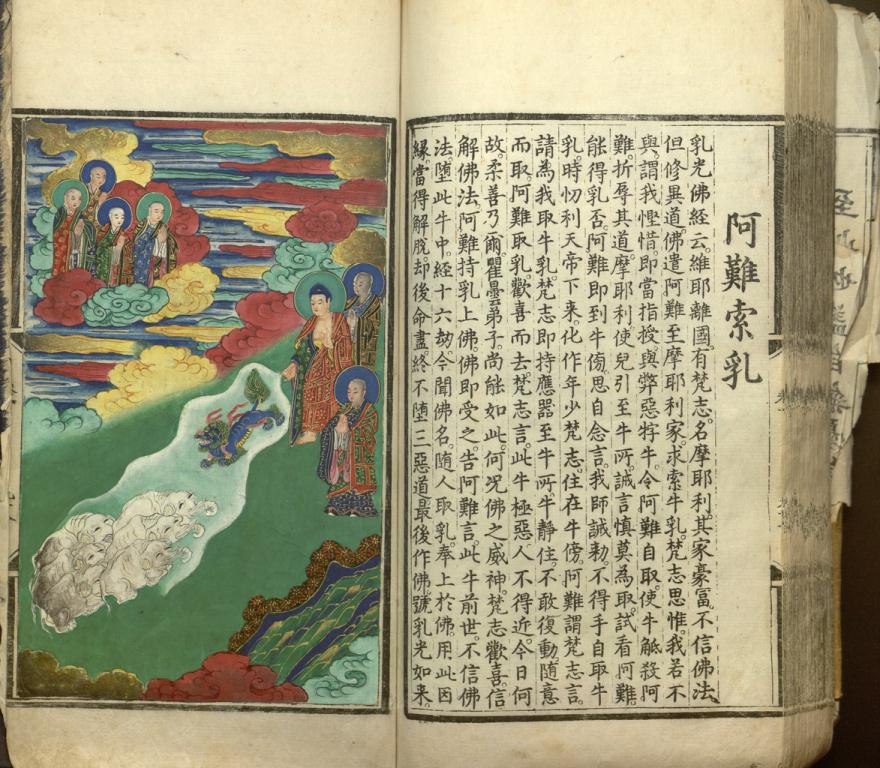 阿難索乳
乳光佛經云。維耶離國有梵志。名摩耶利。其家豪富。不信佛法。
但修異道。佛遣阿難至摩耶利家。求索牛乳。梵志思惟。我若不
與。謂我慳惜。即當指授與弊惡牸牛。令阿難自取。使牛觝殺阿
難。折辱其道。摩耶利使兒引至牛所。誡言慎莫為取。試看阿難
能得乳否。阿難即到牛傍。思自念言。我師誡勑。不得手自取牛
乳。時忉利天帝下來。化作年少梵志。住在牛傍。阿難謂梵志言。
請為我取牛乳。梵志即持應器至牛所。牛靜住。不敢復動。隨意
而取。阿難取乳。歡喜而去。梵志言。此牛極惡。人不得近。今日何
故。柔善乃爾。瞿曇弟子。尚能如此。何況佛之威神。梵志歡喜。信
解佛法。阿難持乳上佛。佛即受之。告阿難言。此牛前世。不信佛
法。墮此牛中。經十六劫。今聞佛名。隨人取乳。奉上於佛。用此因
緣。當得解脫。却後命盡。終不墮三惡道。最後作佛。號乳光如來。